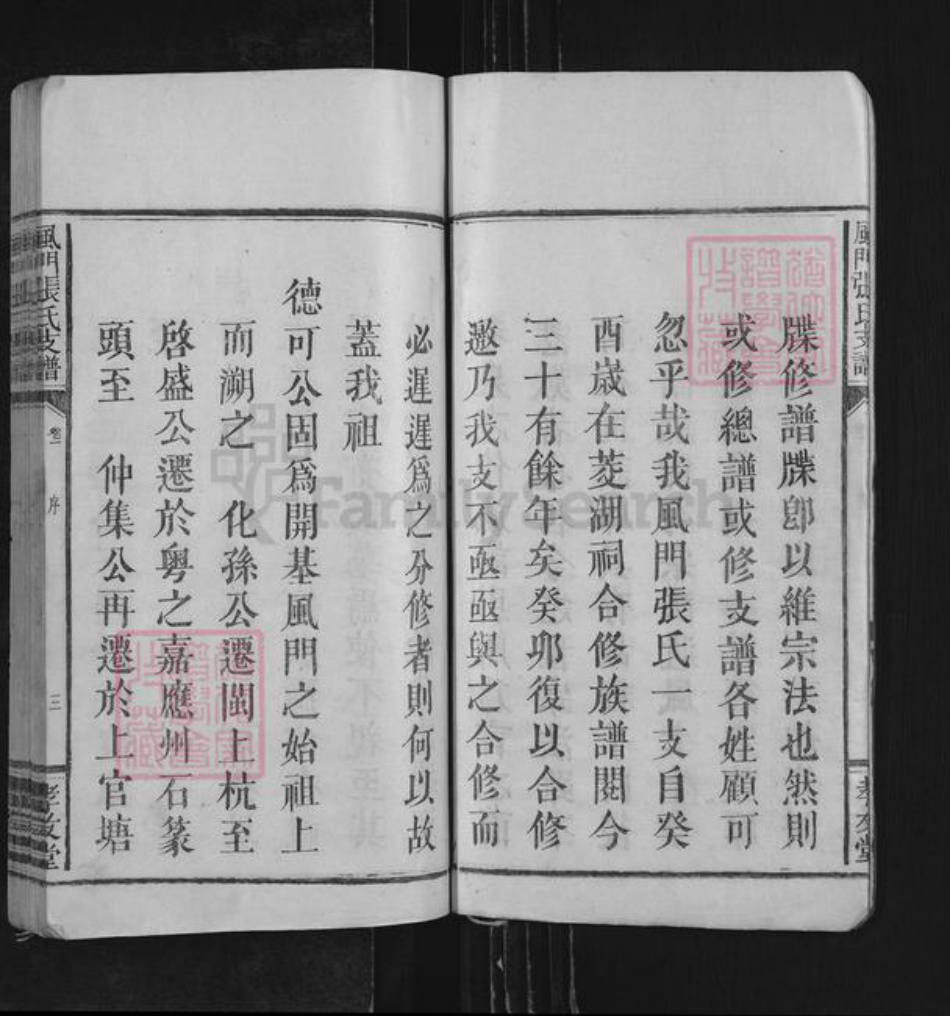 風門張氏支譜
孝友堂
牒修譜牒卽以維宗法也然則
或修總譜或修支譜各姓顧可
忽乎哉我風門張氏一支自癸
酉歲在菱湖祠合修族譜閱今
三十有餘年矣癸卯復以合修
邀乃我支不亟亟與之合修而
必遲遲爲之分修者則何以故
蓋我祖
德可公固爲開基風門之始祖上
而溯之 化孫公遷閩上杭至
啓盛公遷於粵之嘉應州石篆
頭至 仲集公再遷於上官塘
風門張氏支譜
序
三
孝友堂
FamilySearch